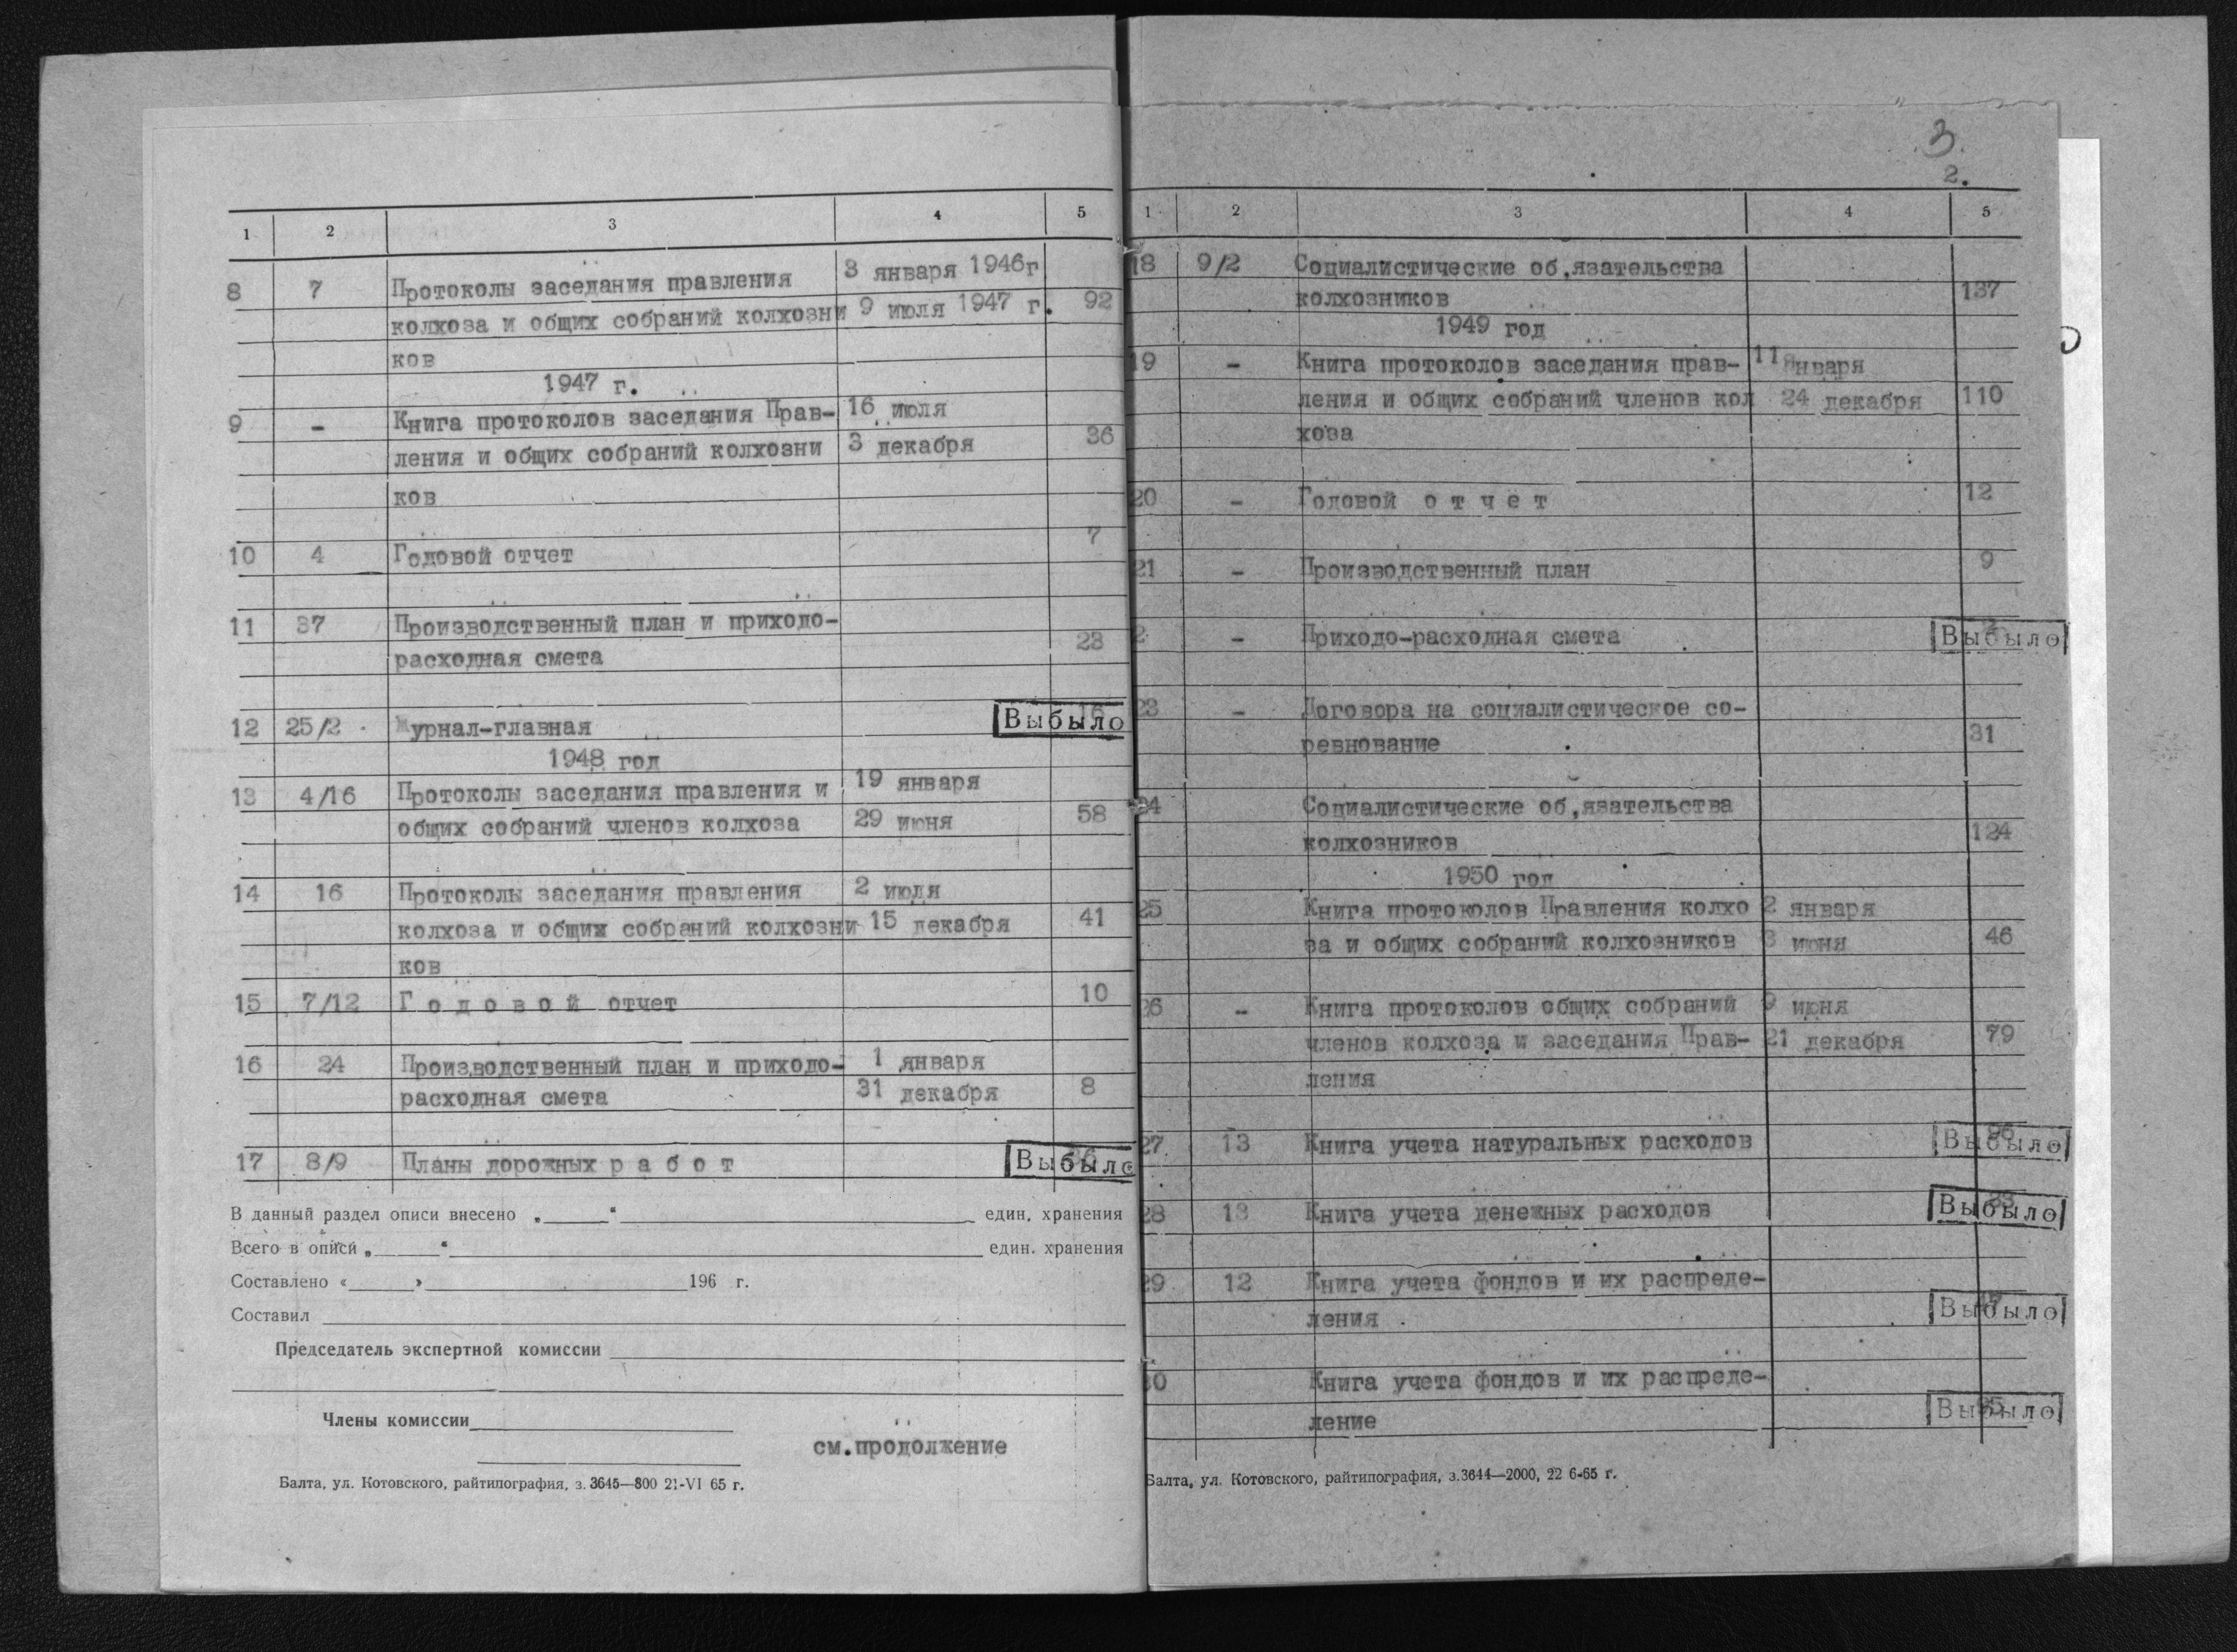 1 2 3 4 5
8 7 Протоколы заседания правления 3 января 1946г
колхоза и общих собраний колхозни 9 июля 1947 г. 92
ков
1947 г.
9 - Книга протоколов заседания Прав- 16 июля
ления и общих собраний колхозни 3 декабря 36
ков
10 4 Годовой отчет 7
11 37 Производственный план и приходо-
расходная смета 23
12 25/2 Журнал-главная 16 Выбыло
1948 год
13 4/16 Протоколы заседания правления и 19 января
общих собраний членов колхоза 29 июня 58
14 16 Протоколы заседания правления 2 июля
колхоза и общих собраний колхозни 15 декабря 41
ков
15 7/12 Г о д о в о й отчет 10
16 24 Производственный план и приходо- 1 января
расходная смета 31 декабря 8
17 8/9 Планы дорожных р а б о т Выбыло
В данный раздел описи внесено „ “ един. хранения
Всего в описи „ “ един. хранения
Составлено « » 196 г.
Составил
Председатель экспертной комиссии
Члены комиссии
см.продолжение
Балта, ул. Котовского, райтипография, з. 3645—800 21-VI 65 г.
3.
2.
1 2 3 4 5
18 9/2 Социалистические об,язательства
колхозников 137
1949 год
19 - Книга протоколов заседания прав- 11 января
ления и общих собраний членов кол 24 декабря 110
хоза
20 - Годовой о т ч е т 12
21 - Производственный план 9
2 - Приходо-расходная смета Выбыло
23 - Договора на социалистическое со-
ревнование 31
24 Социалистические об,язательства
колхозников 124
1950 год
25 Книга протоколов Правления колхо 2 января
за и общих собраний колхозников 3 июня 46
26 - Книга протоколов общих собраний 9 июня
членов колхоза и заседания Прав- 21 декабря 79
ления
27 13 Книга учета натуральных расходов 96 Выбыло
28 13 Книга учета денежных расходов 33 Выбыло
29 12 Книга учета фондов и их распреде-
ления Выбыло
30 Книга учета фондов и их распреде-
ление Выбыло
Балта, ул. Котовского, райтипография, з.3644—2000, 22 6-65 г.